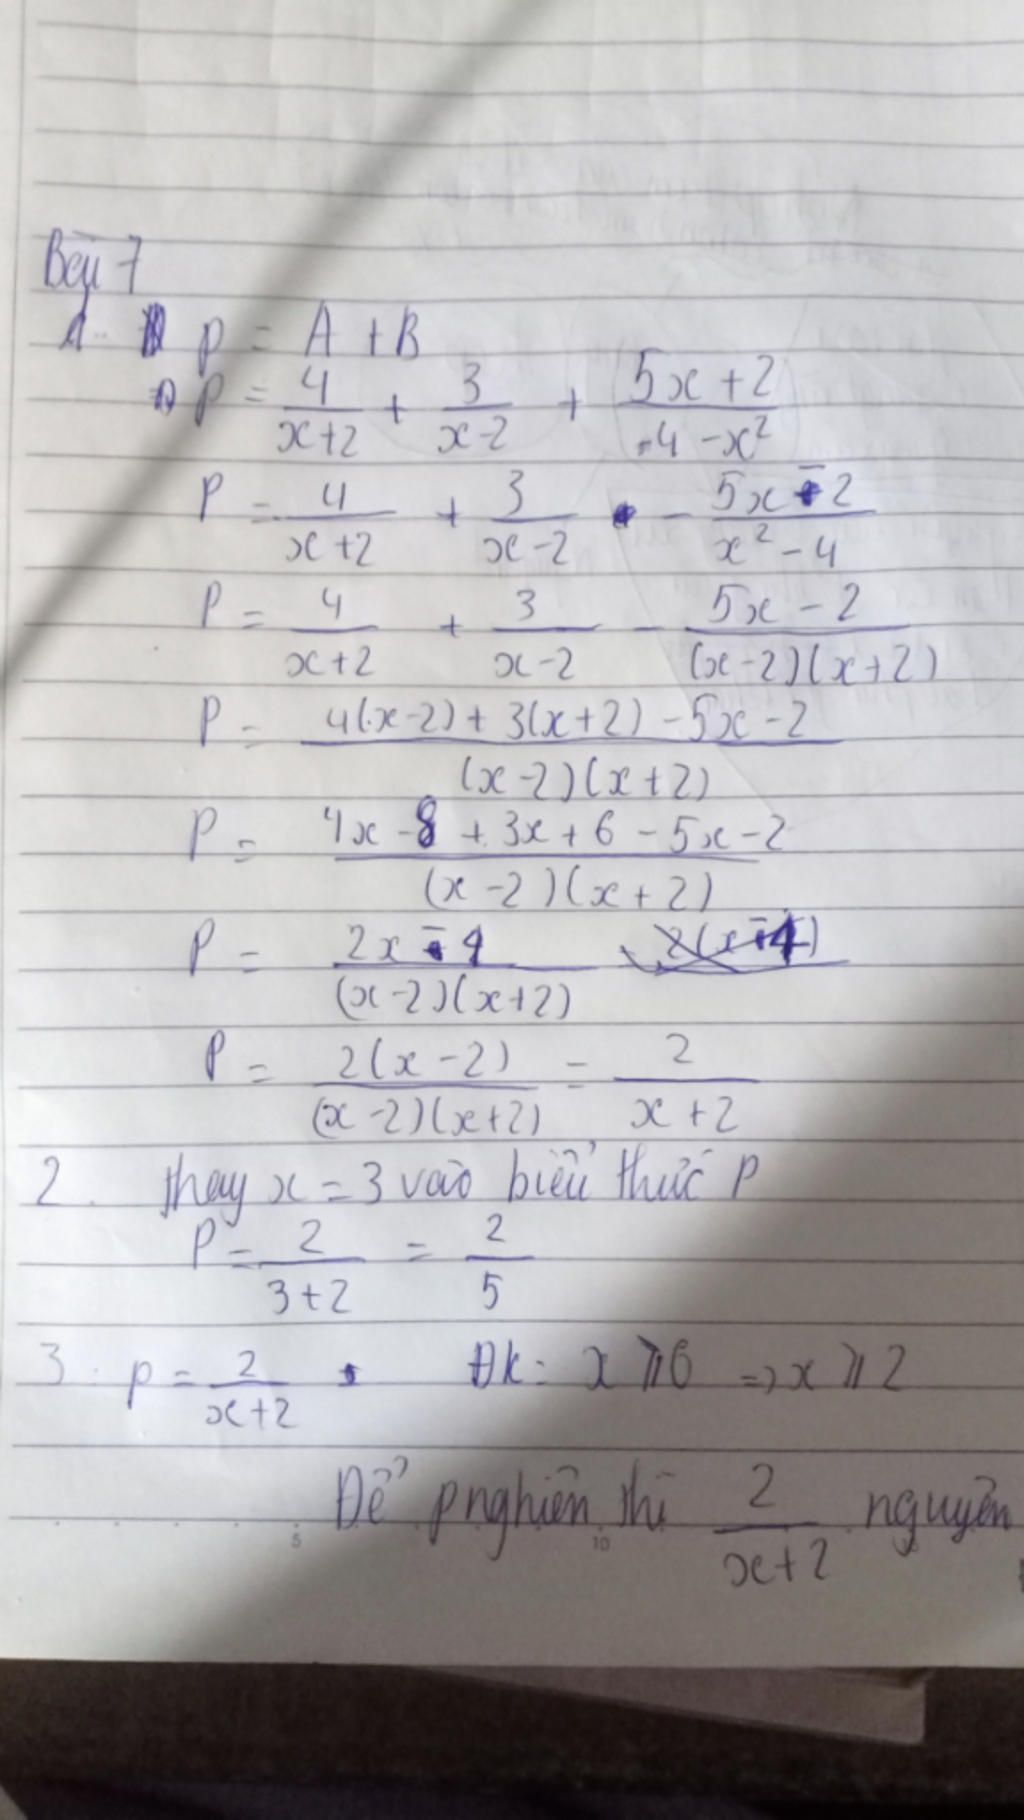 Bài 7
1. P = A + B
=> P = 4/(x+2) + 3/(x-2) + (5x+2)/(4-x²)
P = 4/(x+2) + 3/(x-2) - (5x-2)/(x²-4)
P = 4/(x+2) + 3/(x-2) - (5x-2)/((x-2)(x+2))
P = (4(x-2) + 3(x+2) - 5x - 2)/((x-2)(x+2))
P = (4x - 8 + 3x + 6 - 5x - 2)/((x-2)(x+2))
P = (2x - 4)/((x-2)(x+2))
P = 2(x-2)/((x-2)(x+2)) = 2/(x+2)
2. Thay x = 3 vào biểu thức P
P = 2/(3+2) = 2/5
3. P = 2/(x+2) ĐK: x ⩾ 0 => x ⩾ 2
Để P nghiên thì 2/(x+2) nguyên
5 10